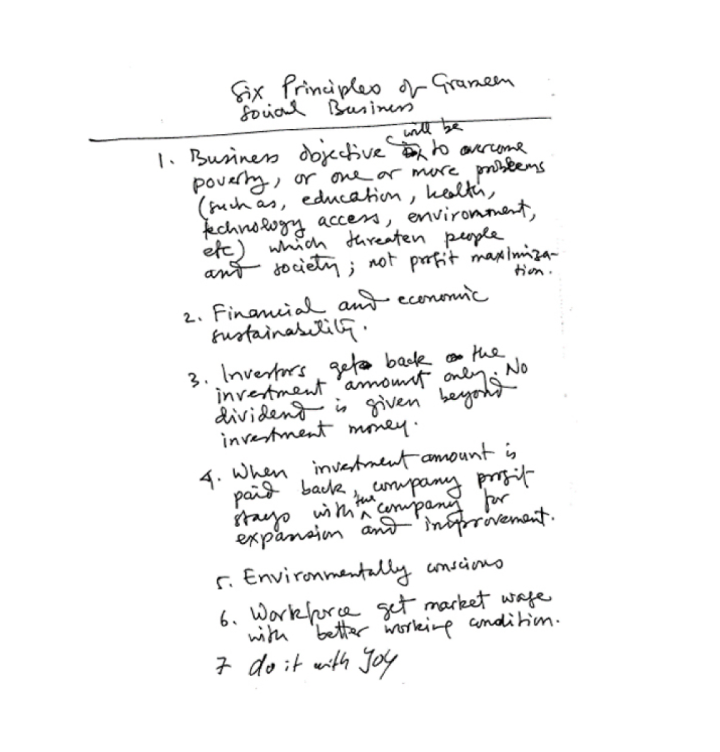 Six Principles of Grameen
Social Business
will be
1. Business objective to overcome
poverty, or one or more problems
(such as, education, health,
technology access, environment,
etc) which threaten people
and society; not profit maximiza-
tion.
2. Financial and economic
sustainability.
3. Investors get back the
investment amount only. No
dividend is given beyond
investment money.
4. When investment amount is
paid back, company profit
stays with the company for
expansion and improvement.
5. Environmentally conscious
6. Workforce get market wage
with better working condition.
7 do it with Joy